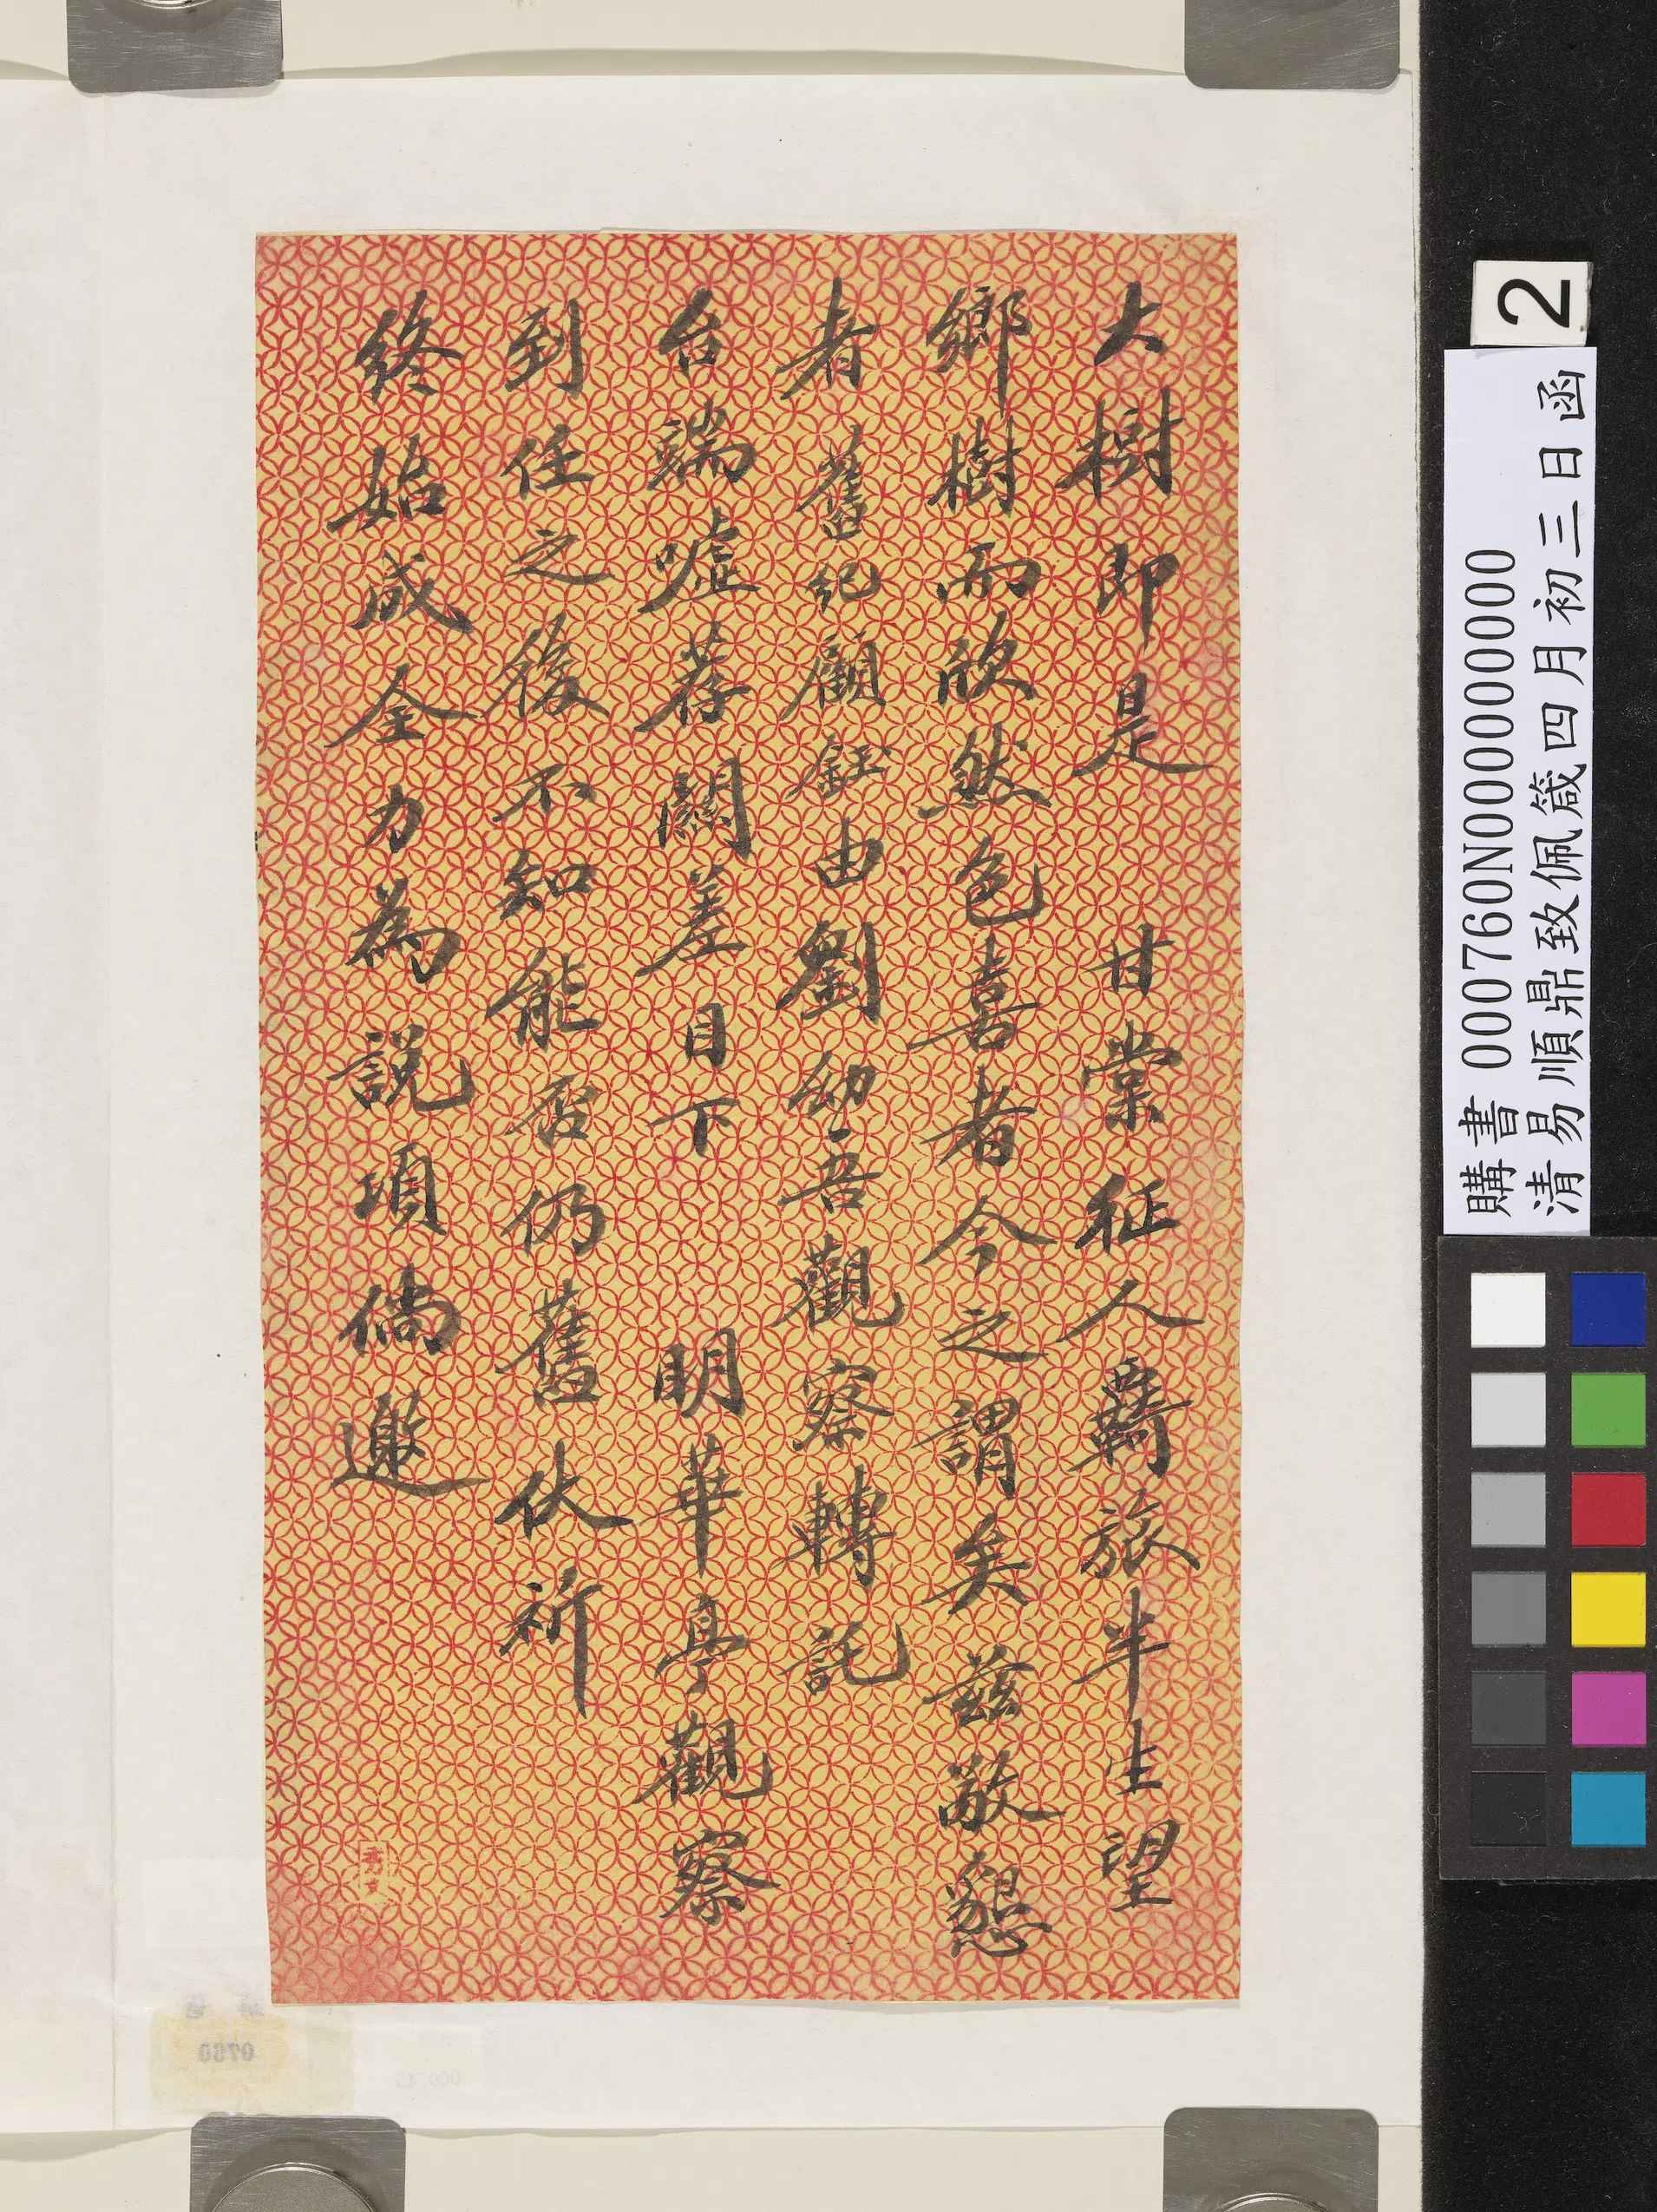 大樹即是甘棠征人羇旅半生望
鄉樹而欣然色喜者今之謂矣茲敬懇
者舊紀顧鈺由劉幼吾觀察轉託
台端噓荐關差目下明華亭觀察
到任之後不知能否仍舊伏祈
終始成全力為說項倘邀
2
購書 000760N000000000
清易順鼎致佩箴四月初三日函
0760